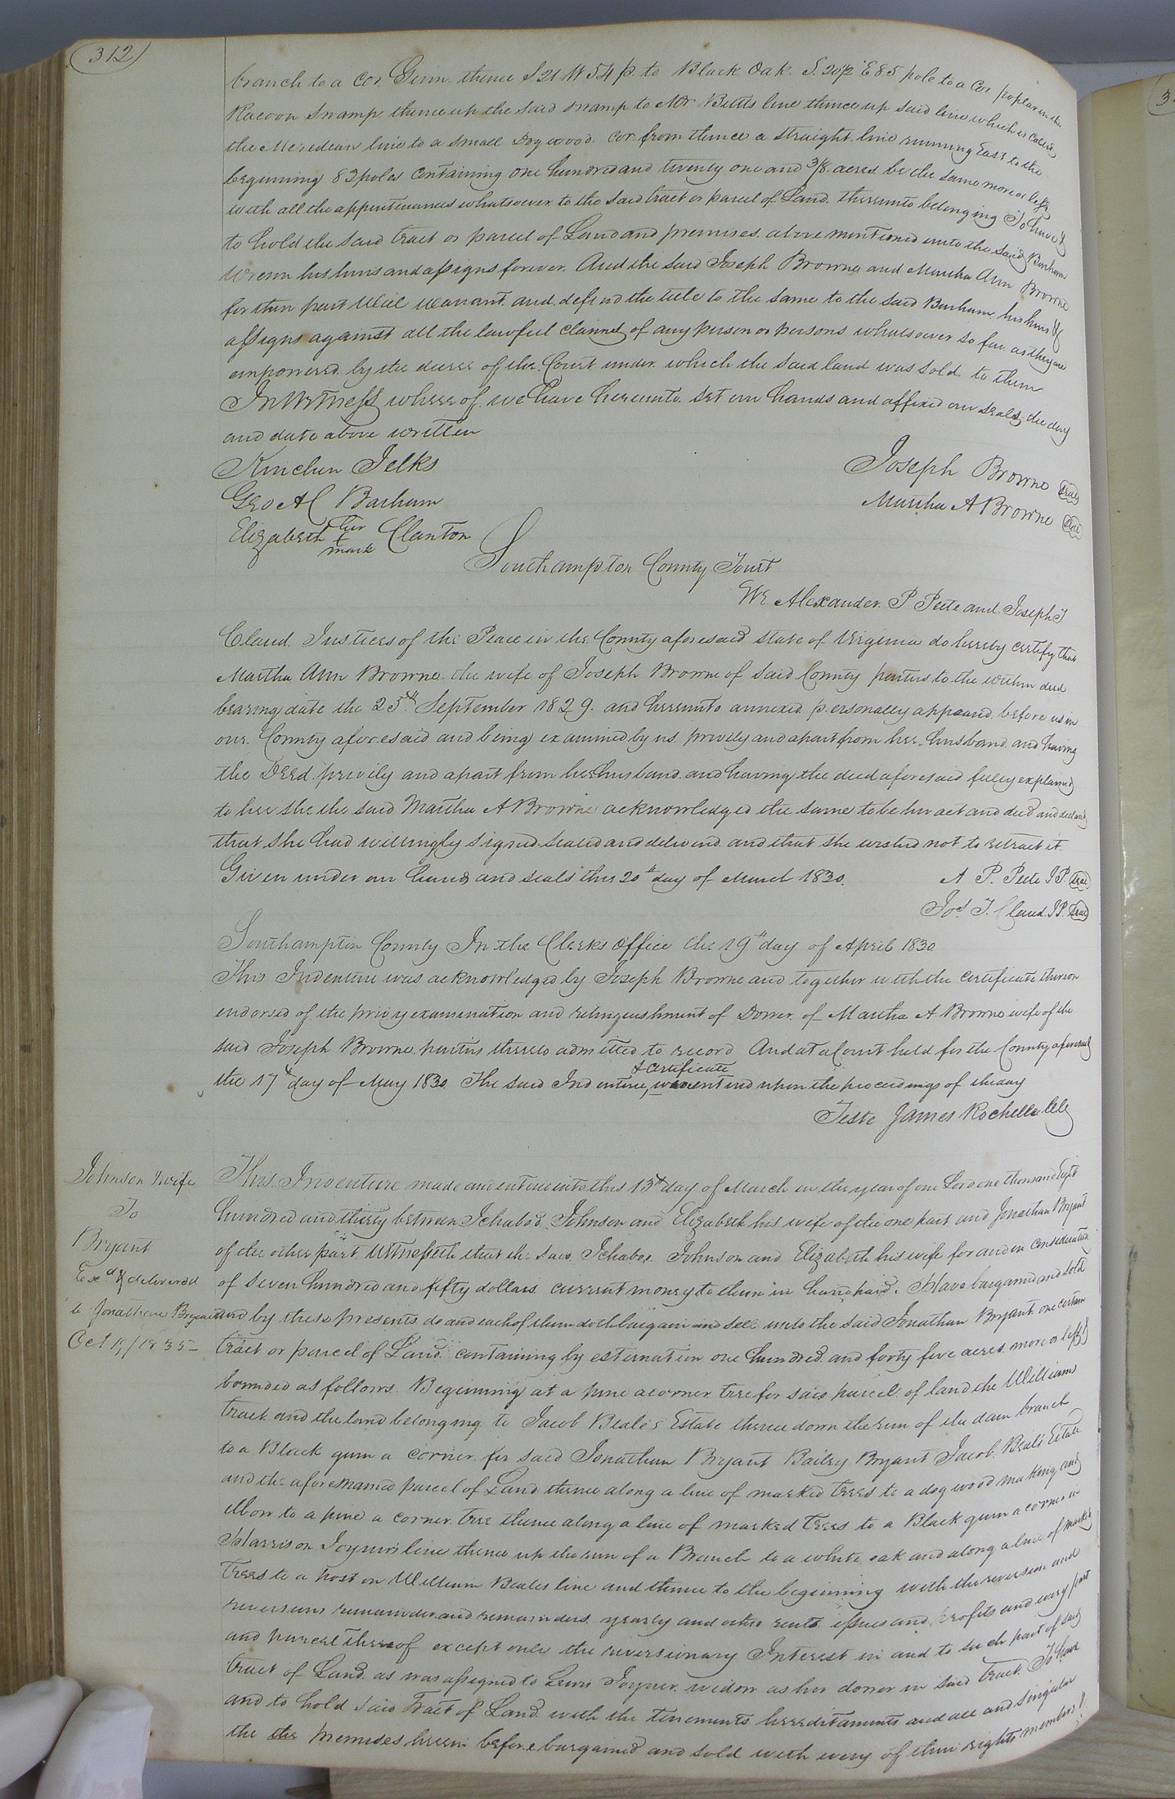 312
branch to a cor. Gum thence S 21 W 54 p. to Black Oak. S. 20½ E 85 pole to a Cor poplar in the
Racoon Swamp thence up the said swamp to Mr Britts line thence up said line which is called
the Meredean line to a small Dogwood. Cor from thence a straight line running East to the
beginning 83 poles Containing one hundred and twenty one and 3/8 acres be the same more or less
with all the appurtenances whatsoever to the said tract or parcel of Land thereunto belonging To have &
to hold the said tract or parcel of Land and premises above mentioned unto the said Barham
his heirs and assigns forever. And the said Joseph Browne and Martha Ann Browne
for their part Will warrant and defend the title to the same to the said Barham his heirs &
assigns against all the lawful claims of any person or persons whatsoever so far as they are
empowered by the decree of the Court under which the said land was sold to them
In Witness whereof we have hereunto set our hands and affixed our seals the day
and date above written
Kinchen Jelks
Joseph Browne seal
Geo A C Barham
Martha A Browne seal
Elizabeth her x mark Clanton
Southampton County Court
We Alexander. P Peete and Joseph T
Claud Justices of the Peace in the County aforesaid state of Virginia do hereby certify that
Martha Ann Browne the wife of Joseph Browne of said County parties to the within deed
bearing date the 25th September 1829. and hereunto annexed personally appeared before us in
our County aforesaid and being examined by us privily and apart from her husband and having
the Deed privily and apart from her husband and having the deed aforesaid fully explained
to her she the said Martha A Browne acknowledged the same to be her act and deed and declared
that she had willingly signed sealed and delivered and that she wished not to retract it
Given under our hands and seals this 20th day of March 1830.
A P. Peete JP. seal
Jos T. Claud JP. seal
Southampton County In the Clerks Office the 19th day of April 1830
This Indenture was acknowledged by Joseph Browne and together with the certificate thereon
endorsed of the privy examination and relinquishment of Dower of Martha A. Browne wife of the
said Joseph Browne parties thereto admitted to record And at a Court held for the County aforesaid
the 17th day of May 1830 The said Indenture & Certificate entered upon the proceedings of the day
Teste James Rochelle Clk
Johnson & wife
To
Bryant
Exd & delivered
to Jonathan Bryant
Oct 1835
This Indenture made and entered into this 13th day of March in the year of our Lord one thousand Eight
hundred and thirty between Ichabod Johnson and Elizabeth his wife of the one part and Jonathan Bryant
of the other part Witnesseth that the said Ichabod Johnson and Elizabeth his wife for and in consideration
of seven hundred and fifty dollars current money to them in hand paid. Have bargained and sold
and by these presents do and each of them doth bargain and sell unto the said Jonathan Bryant one certain
tract or parcel of Land containing by estimation one hundred and forty five acres more or less
bounded as follows. Beginning at a pine a corner tree for said parcel of land the Williams
tract and the land belonging to Jacob Beale's Estate thence down the run of the dam branch
to a Black gum a corner for said Jonathan Bryant Bailey Bryant Jacob Beale Estate
and the aforenamed parcel of Land thence along a line of marked trees to a dog wood making an
elbow to a pine a corner tree thence along a line of marked trees to a Black gum a corner in
Harrison Joyners line thence up the run of a Branch to a white oak and along a line of marked
trees to a post on William Beales line and thence to the beginning with the reversion and
reversions remainder and remainders yearly and other rents issues and profits and every part
and parcel thereof except only the reversionary Interest in and to such part of said
tract of Land as was assigned to Joyner widow as her dower in said tract To Have
and to hold said Tract of Land with the tenements hereditaments and all and singular
the the premises herein before bargained and sold with every of their rights members &